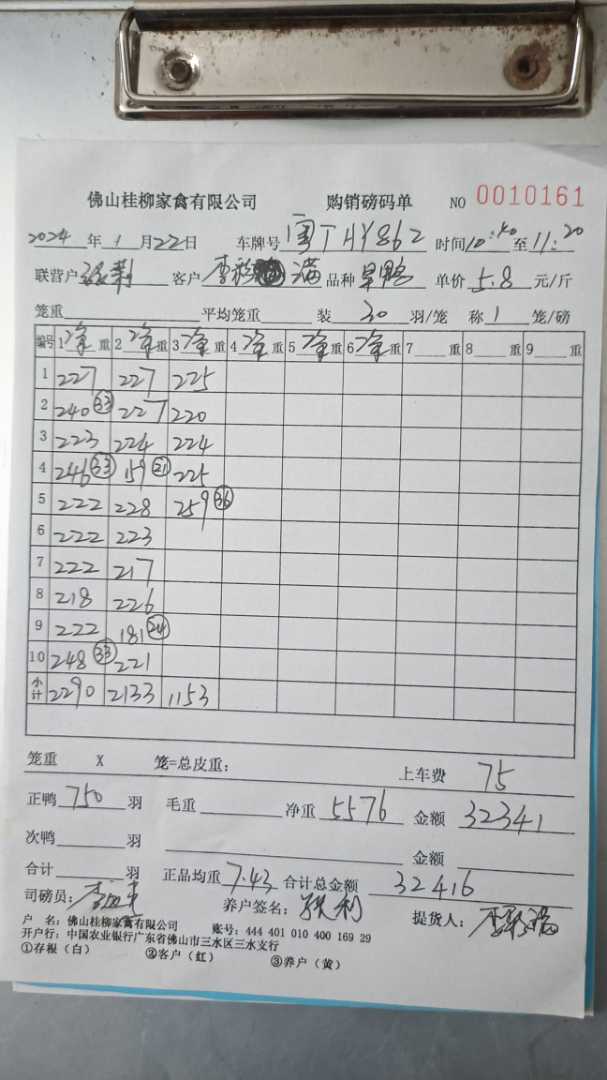 佛山桂柳家禽有限公司 购销磅码单 NO 0010161
2024年1月22日 车牌号 闽THY862 时间10:40至11:20
联营户 客户 李彩满 品种 旱鸭 单价 5.8 元/斤
笼重 平均笼重 装 30 羽/笼 称 1 笼/磅
编号 1净重 2净重 3净重 4净重 5净重 6净重 7 重 8 重 9 重
1 227 227 225
2 240 33 227 220
3 223 224 224
4 246 33 159 21 225
5 222 228 259 36
6 222 223
7 222 217
8 218 226
9 222 181 24
10 248 33 221
小计 2290 2133 1153
笼重 X 笼=总皮重: 上车费 75
正鸭 750 羽 毛重 净重 5576 金额 32341
次鸭 羽 金额
合计 羽 正品均重 7.43 合计总金额 32416
司磅员: 养户签名: 提货人: 李彩满
户 名: 佛山桂柳家禽有限公司 账号: 444 401 010 400 169 29
开户行: 中国农业银行广东省佛山市三水区三水支行
①存根(白) ②客户(红) ③养户(黄)